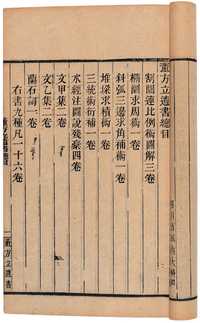 董方立遺書總目
割圜連比例術圖解三卷
橢圜求周術一卷
斜弧三邊求角補術一卷
堆垛求積術一卷
三統術衍補一卷
水經注圖說殘稾四卷
文甲集二卷
文乙集二卷
蘭石詞一卷
右書九種凡一十六卷
董方立遺書